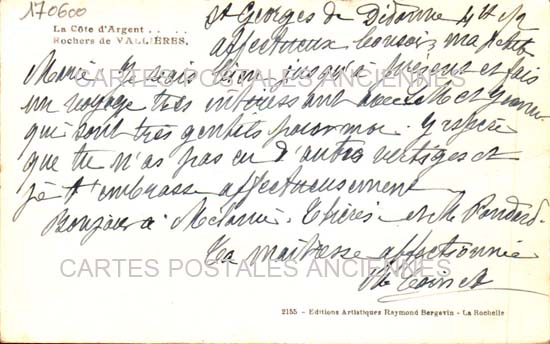 170600
La Côte d'Argent
Rochers de VALLIÈRES.
St Georges de Didonne 4
affectueux bonsoir, ma petite
Marie. Je vais bien jusqu'à présent et fais
un voyage très intéressant avec M et
qui sont très gentils pour moi. J'espère
que tu n'as pas eu d'autres vertiges et
je t'embrasse affectueusement
Bonjour à et M
Ta maîtresse affectionnée
CARTES POSTALES ANCIENNES
CARTES POSTALES ANCIENNES
2155 - Editions Artistiques Raymond Bergevin - La Rochelle